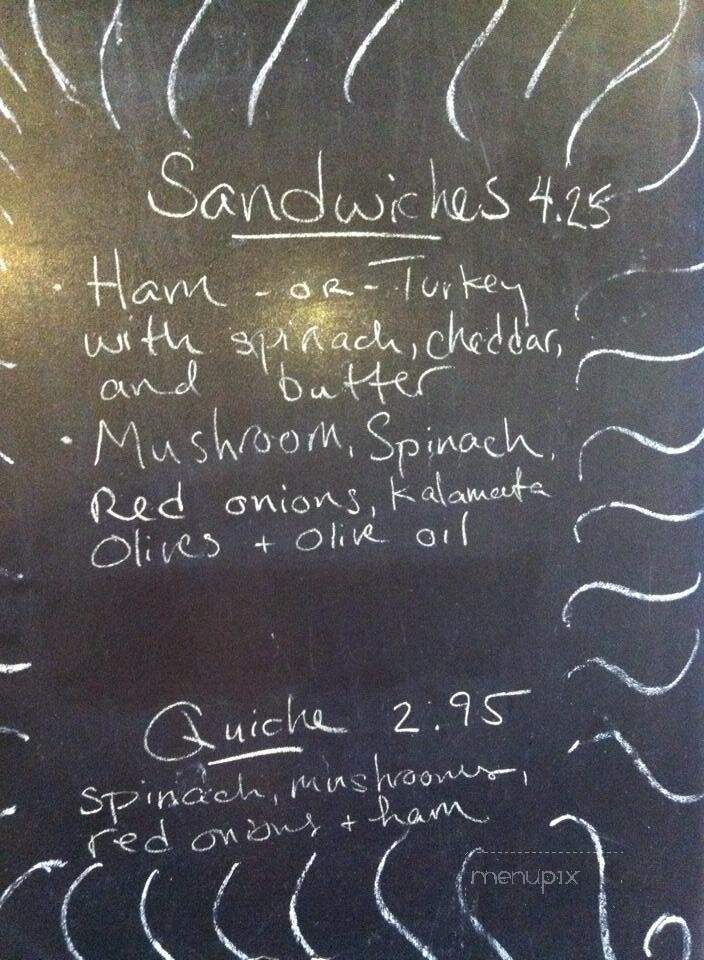 Sandwiches 4.25
• Ham - OR - Turkey
with spinach, cheddar,
and butter
• Mushroom, Spinach,
Red onions, Kalamata
Olives + Olive oil
Quiche 2.95
spinach, mushrooms,
red onions + ham
menupix